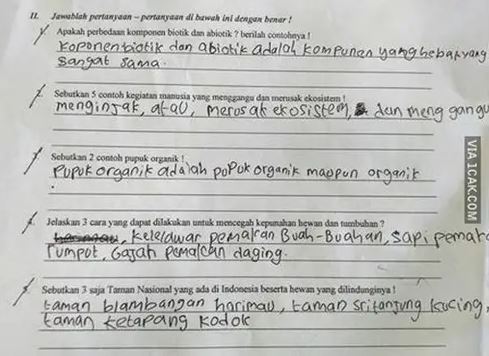 II. Jawablah pertanyaan – pertanyaan di bawah ini dengan benar !
Apakah perbedaan komponen biotik dan abiotik ? berilah contohnya !
koponen biotik dan abiotik adalah komponen yang
sangat sama.
Sebutkan 5 contoh kegiatan manusia yang menggangu dan merusak ekosistem !
menginjak, atau, merusak ekosistem, dan meng gangu
Sebutkan 2 contoh pupuk organik !
Pupuk organik adalah pupuk organik maupun organik
.
Jelaskan 3 cara yang dapat dilakukan untuk mencegah kepunahan hewan dan tumbuhan ?
, kelelawar pemakan Buah-Buahan, sapi pemak
rumput, Gajah pemakan daging.
Sebutkan 3 saja Taman Nasional yang ada di Indonesia beserta hewan yang dilindunginya !
taman blambangan harimau, taman sritanjung kucing,
taman ketapang kodok
VIA 1CAK.COM